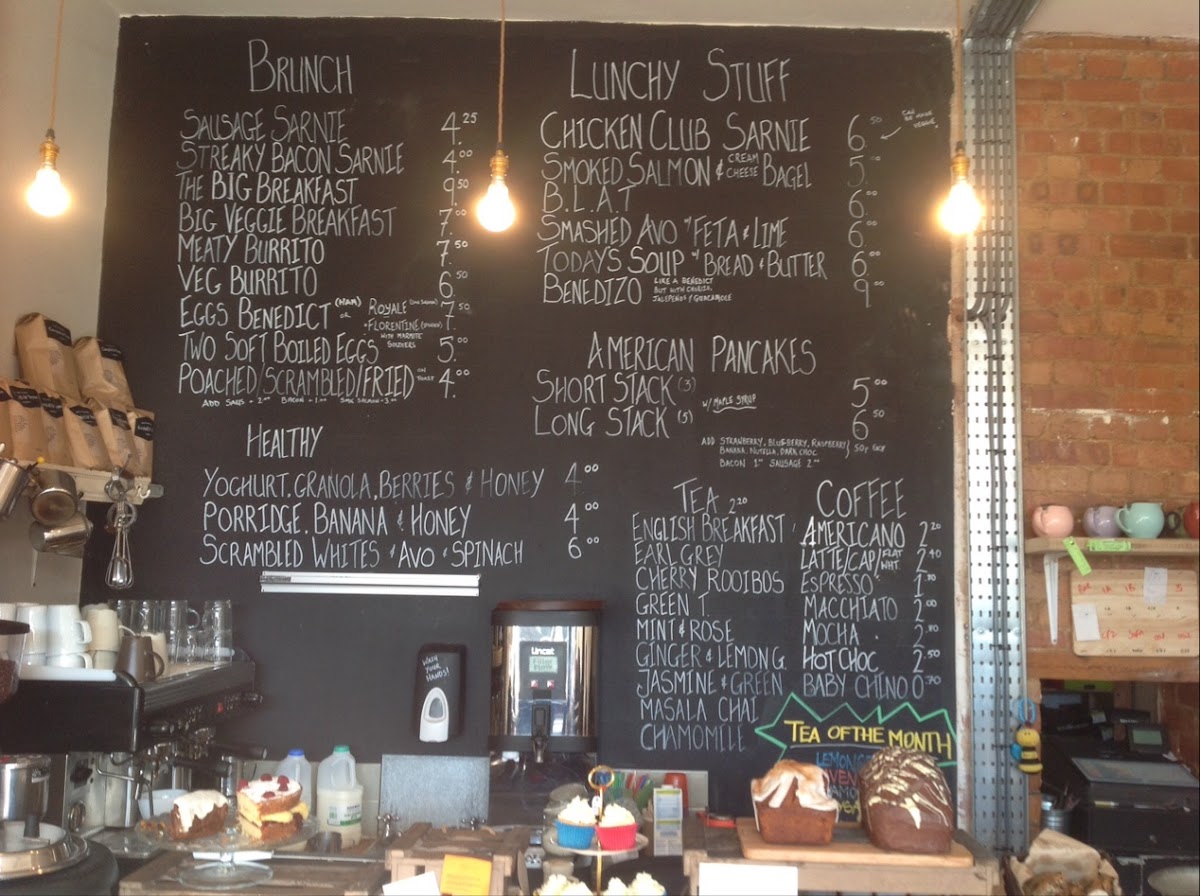 BRUNCH
SAUSAGE SARNIE 4.25
STREAKY BACON SARNIE 4.00
THE BIG BREAKFAST 9.50
BIG VEGGIE BREAKFAST 7.00
MEATY BURRITO 7.50
VEG BURRITO 6.50
EGGS BENEDICT (HAM) OR ROYALE 7.50
FLORENTINE
WITH MARMITE
SOLDIERS
TWO SOFT BOILED EGGS 5.00
POACHED/SCRAMBLED/FRIED ON TOAST 4.00
ADD SAUS - 2.00 BACON - 1.00 SMOK SALMON - 3.00
HEALTHY
YOGHURT, GRANOLA, BERRIES & HONEY 4.00
PORRIDGE, BANANA & HONEY 4.00
SCRAMBLED WHITES & AVO & SPINACH 6.00
LUNCHY STUFF
CHICKEN CLUB SARNIE 6.50
CAN BE MADE VEGGIE
SMOKED SALMON & CREAM CHEESE BAGEL 5.00
B.L.A.T 6.00
SMASHED AVO W/ FETA & LIME 6.00
TODAY'S SOUP W/ BREAD & BUTTER 6.00
BENEDIZO 9.00
LIKE A BENEDICT
BUT WITH CHORIZO,
JALEPENOS & GUACAMOLE
AMERICAN PANCAKES
SHORT STACK (3) 5.00
W/ MAPLE SYRUP
LONG STACK (5) 6.50
ADD STRAWBERRY, BLUEBERRY, RASPBERRY
BANANA, NUTELLA, DARK CHOC 50p EACH
BACON 1.00 SAUSAGE 2.00
TEA 2.20
ENGLISH BREAKFAST
EARL GREY
CHERRY ROOIBOS
GREEN T.
MINT & ROSE
GINGER & LEMON G.
JASMINE & GREEN
MASALA CHAI
CHAMOMILE
COFFEE
AMERICANO 2.20
LATTE/CAP/FLAT WHT. 2.40
ESPRESSO
MACCHIATO 2.00
MOCHA 2.80
HOT CHOC 2.50
BABY CHINO 0.70
TEA OF THE MONTH
WASH YOUR HANDS!
Lincat